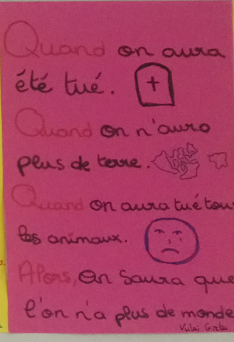 Quand on aura
été tué.
Quand on n'aura
plus de terre.
Quand on aura tué tous
les animaux.
Alors, on saura que
l'on n'a plus de monde